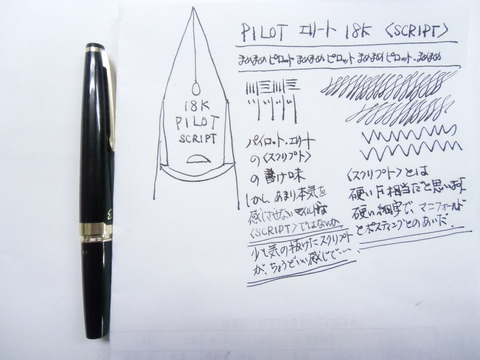 PILOT エリート 18K 〈SCRIPT〉
まめまめ ピロット まめまめ ピロット まめまめ ピロット・まめまめ
18K
PILOT
SCRIPT
パイロット・エリート
の〈スクリプト〉
の書け味
しかし、あまり本気を
感じさせないマイルドな
〈SCRIPT〉ではないか。
少し気の抜けたスクリプト
が、ちょうどいい感じで…
〈スクリプト〉とは
硬い 相当だと思います
硬い細字で、マニフォールド
とポスティングとのあいだ。
E